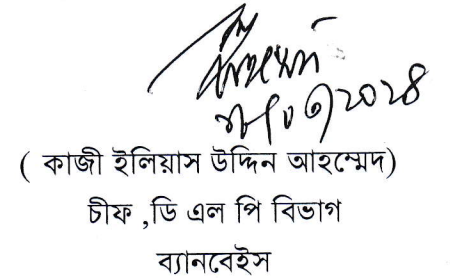 ( কাজী ইলিয়াস উদ্দিন আহম্মেদ)
চীফ ,ডি এল পি বিভাগ
ব্যানবেইস